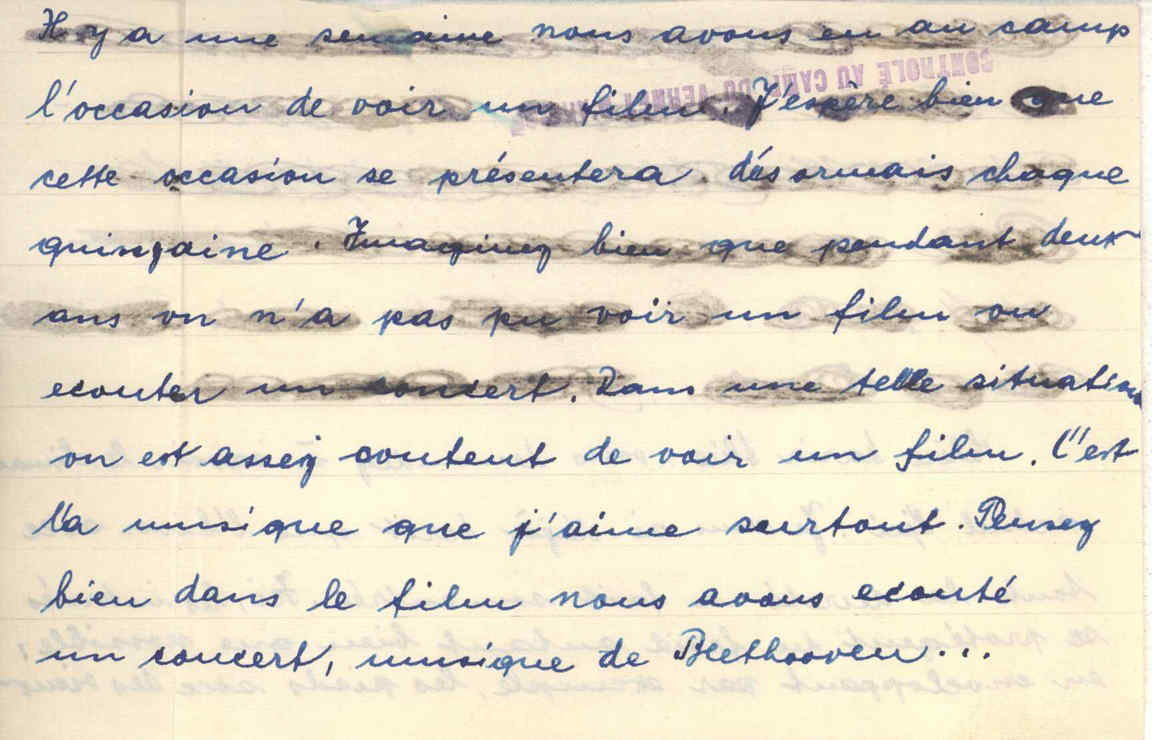 Il y a une semaine nous avons eu au camp
CONTROLÉ AU CAMP DU VERNET
l'occasion de voir un film. J'espère bien que
cette occasion se présentera désormais chaque
quinzaine. Imaginez bien que pendant deux
ans on n'a pas pu voir un film ou
ecouter un concert. Dans une telle situation
on est assez content de voir un film. C'est
la musique que j'aime surtout. Pensez
bien dans le film nous avons ecouté
un concert, musique de Beethooven...